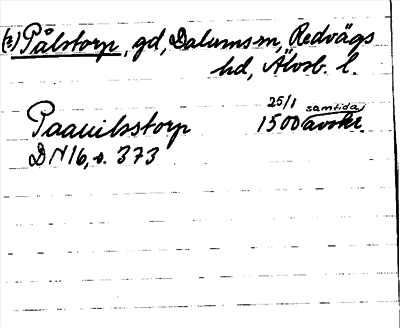 (?) Pålstorp, gd, Dalums sn, Redvägs
hd, Älvsb. l.
25/1 samtida
Paauilsstorp 1500 avskr.
DN 16, s. 373